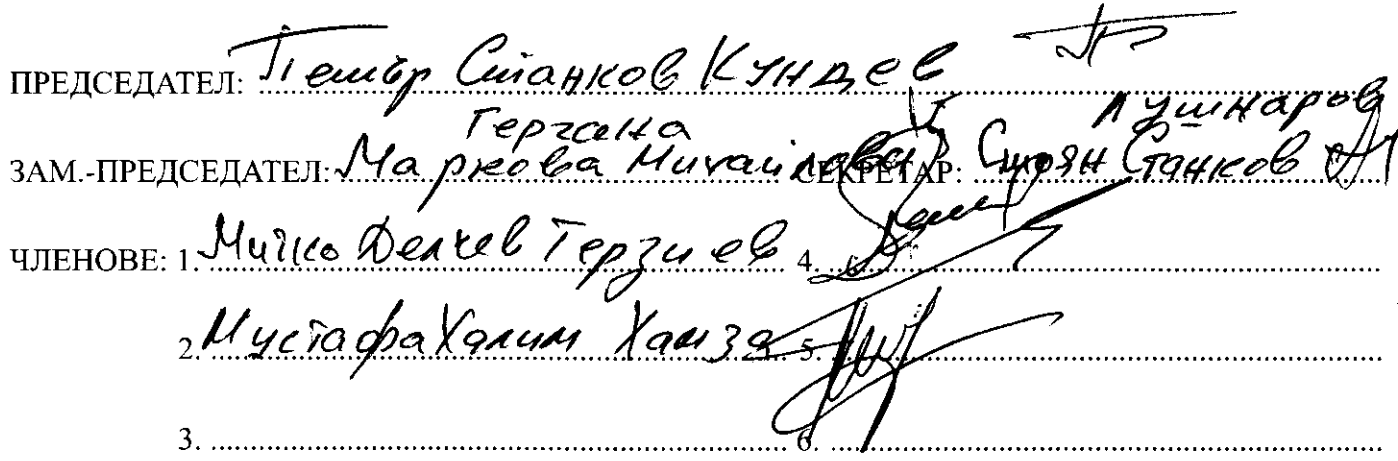 ПРЕДСЕДАТЕЛ: Петър Станков Кундев
Гергана
ЗАМ.-ПРЕДСЕДАТЕЛ: Маркова Михайлова СЕКРЕТАР: Стоян Станков
ЧЛЕНОВЕ: 1. Мичко Делчев Терзиев 4.
2. Мустафа Халим Хамза 5.
3. 6.